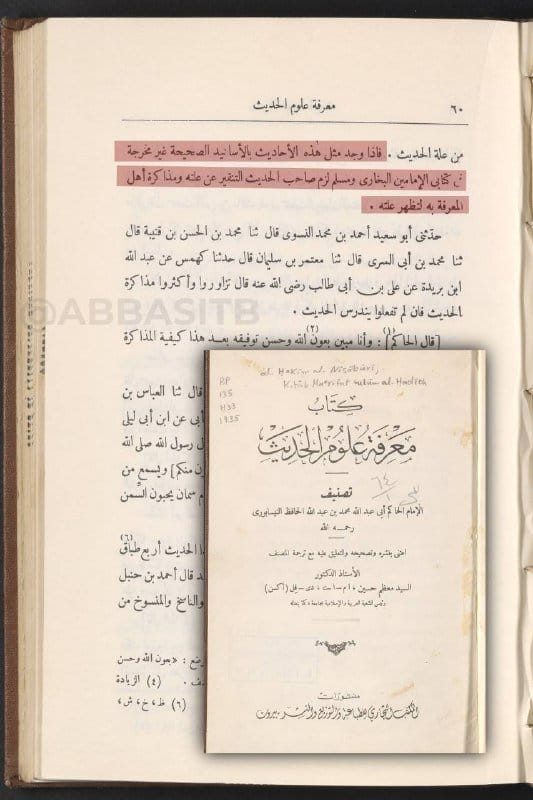 معرفة علوم الحديث
٦٠
من علة الحديث . فاذا وجد مثل هذه الأحاديث بالأسانيد الصحيحة غير مخرجة
فى كتابى الإمامين البخارى ومسلم لزم صاحب الحديث التنقير عن علته ومذاكرة أهل
المعرفة به لتظهر علته .
حدثنى أبو سعيد أحمد بن محمد النسوى قال ثنا محمد بن الحسن بن قتيبة قال
ثنا محمد بن أبى السرى قال ثنا معتمر بن سليمان قال حدثنا كهمس عن عبد الله
ابن بريدة عن على بن أبى طالب رضى الله عنه قال تزاوروا وأكثروا مذاكرة
الحديث فان لم تفعلوا يندرس الحديث .
@ABBASITB
[قال الحاكم](١) : وأنا مبين بعون(٢) الله وحسن توفيقه بعد هذا كيفية المذاكرة
قال ثنا العباس بن
أبى عن ابن أبى ليلى
ل رسول الله صلى الله
ن منكم] ويسمع من
م سمان يحبون السمن
(٦)
ا الحديث أربع طباق
د قال أحمد بن حنبل
والناسخ والمنسوخ من
ضع : «بعون الله وحسن
. (٤) الزيادة
(٦) ظ، خ، ش،
al-Hakim al-Nisaburi,
Kitab Ma'rifat 'ulum al-Hadith
BP
135
H33
1935
كتاب
معرفة علوم الحديث
تصنيف
الإمام الحاكم أبى عبد الله محمد بن عبد الله الحافظ النيسابورى
رحمه الله
اعتنى بنشره وتصحيحه والتعليق عليه مع ترجمة المصنف
الأستاذ الدكتور
السيد معظم حسين ، ام - ا ، دى - فل (اكسن)
رئيس الشعبة العربية والإسلامية بجامعة دكة بنغاله
منشورات
المكتب التجارى للطباعة والتوزيع والنشر - بيروت